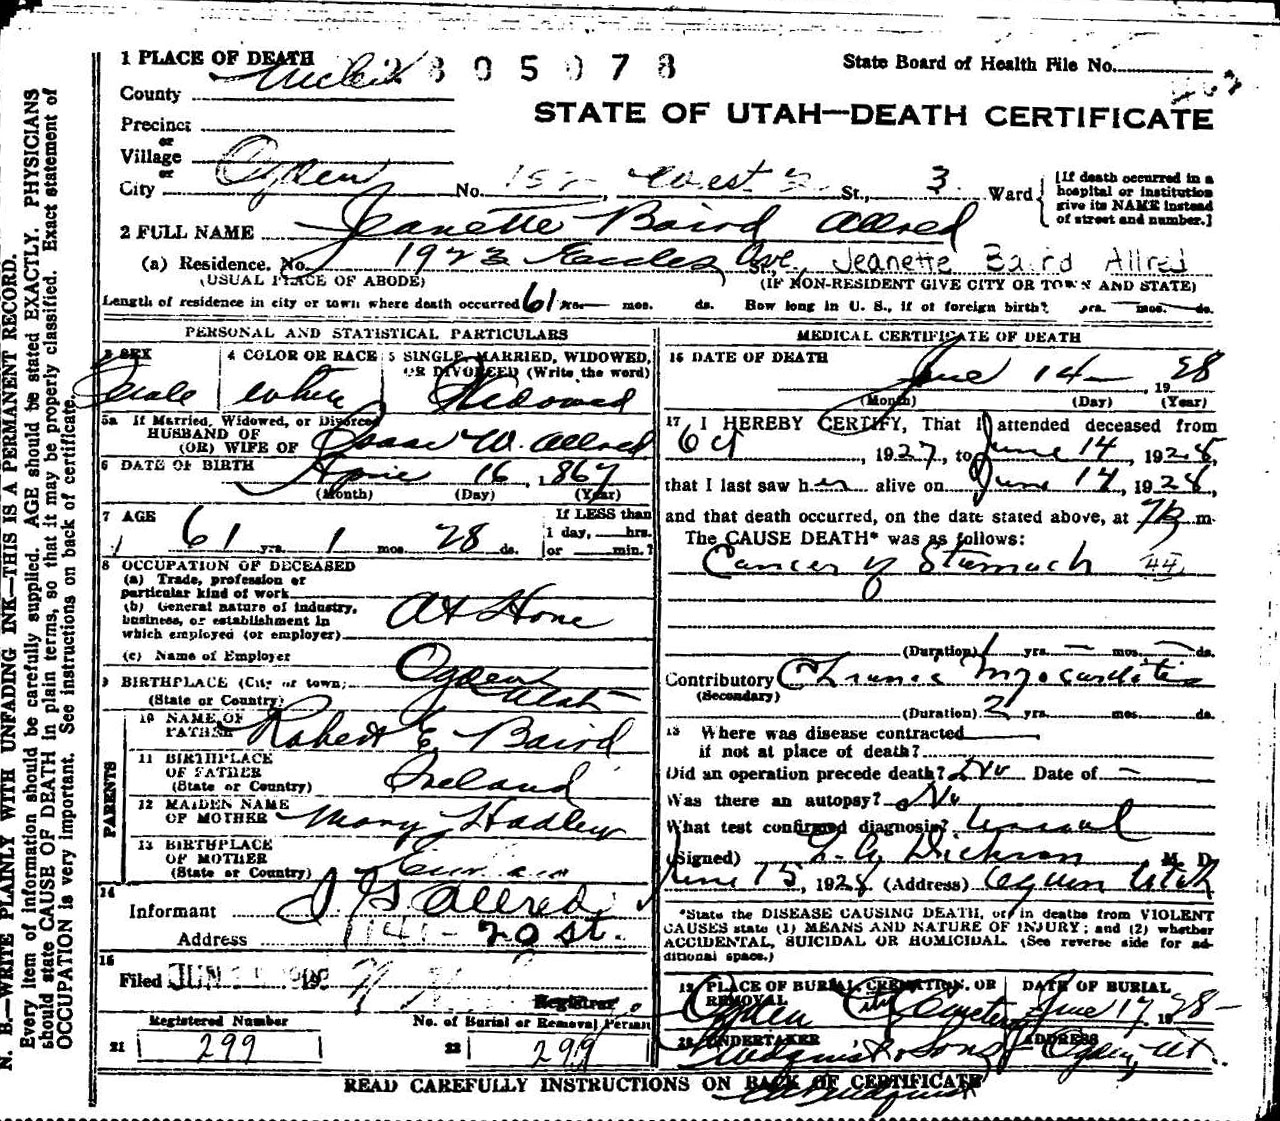 1 PLACE OF DEATH 2805078 State Board of Health File No.
County Weber
STATE OF UTAH—DEATH CERTIFICATE
Precinct
or
Village
or
City Ogden No. 152 West 2 St., 3 Ward [If death occurred in a hospital or institution give its NAME instead of street and number.]
2 FULL NAME Jeanette Baird Allred
(a) Residence. No. 1923 Eccles Ave St., Jeanette Baird Allred
(USUAL PLACE OF ABODE) (IF NON-RESIDENT GIVE CITY OR TOWN AND STATE)
Length of residence in city or town where death occurred 61 yrs. mos. ds. How long in U. S., if of foreign birth? yrs. mos. ds.
PERSONAL AND STATISTICAL PARTICULARS
3 SEX 4 COLOR OR RACE 5 SINGLE, MARRIED, WIDOWED, OR DIVORCED (Write the word)
white Widowed
5a If Married, Widowed, or Divorced
HUSBAND OF
(OR) WIFE OF Isaac W. Allred
6 DATE OF BIRTH April 16, 1867
(Month) (Day) (Year)
7 AGE 61 yrs. 1 mos. 28 ds. If LESS than 1 day, hrs. or min.?
8 OCCUPATION OF DECEASED
(a) Trade, profession or
particular kind of work
(b) General nature of industry,
business, or establishment in
which employed (or employer)
At Home
(c) Name of Employer
9 BIRTHPLACE (City or town) Ogden
(State or Country) Utah
PARENTS
10 NAME OF FATHER Robert E Baird
11 BIRTHPLACE OF FATHER (State or Country) Ireland
12 MAIDEN NAME OF MOTHER Mary Hadley
13 BIRTHPLACE OF MOTHER (State or Country)
14
Informant J G Allred
Address 1141 - 20 St.
15
Filed JUN 19
Registrar
Registered Number No. of Burial or Removal Permit
21 299 22 299
MEDICAL CERTIFICATE OF DEATH
16 DATE OF DEATH
June 14 1928
(Month) (Day) (Year)
17 I HEREBY CERTIFY, That I attended deceased from
Oct, 1927, to June 14, 1928,
that I last saw her alive on June 14, 1928,
and that death occurred, on the date stated above, at 7 m.
The CAUSE DEATH* was as follows:
Cancer of Stomach 44
(Duration) 1 yrs. — mos. — ds.
Contributory Chronic Myocarditis
(Secondary)
(Duration) 2 yrs. mos. ds.
18 Where was disease contracted
if not at place of death?
Did an operation precede death? No Date of —
Was there an autopsy? No
What test confirmed diagnosis? usual
(Signed) Dickson M. D.
June 15, 1928 (Address) Ogden Utah
*State the DISEASE CAUSING DEATH, or in deaths from VIOLENT
CAUSES state (1) MEANS AND NATURE OF INJURY; and (2) whether
ACCIDENTAL, SUICIDAL OR HOMICIDAL. (See reverse side for ad-
ditional space.)
19 PLACE OF BURIAL, CREMATION, OR REMOVAL DATE OF BURIAL
Ogden City Cemetery June 17, 1928
20 UNDERTAKER ADDRESS
Lindquist & Sons Ogden, Ut.
READ CAREFULLY INSTRUCTIONS ON BACK OF CERTIFICATE
N. B.—WRITE PLAINLY WITH UNFADING INK—THIS IS A PERMANENT RECORD.
Every item of information should be carefully supplied. AGE should be stated EXACTLY. PHYSICIANS
should state CAUSE OF DEATH in plain terms, so that it may be properly classified. Exact statement of
OCCUPATION is very important. See instructions on back of certificate.